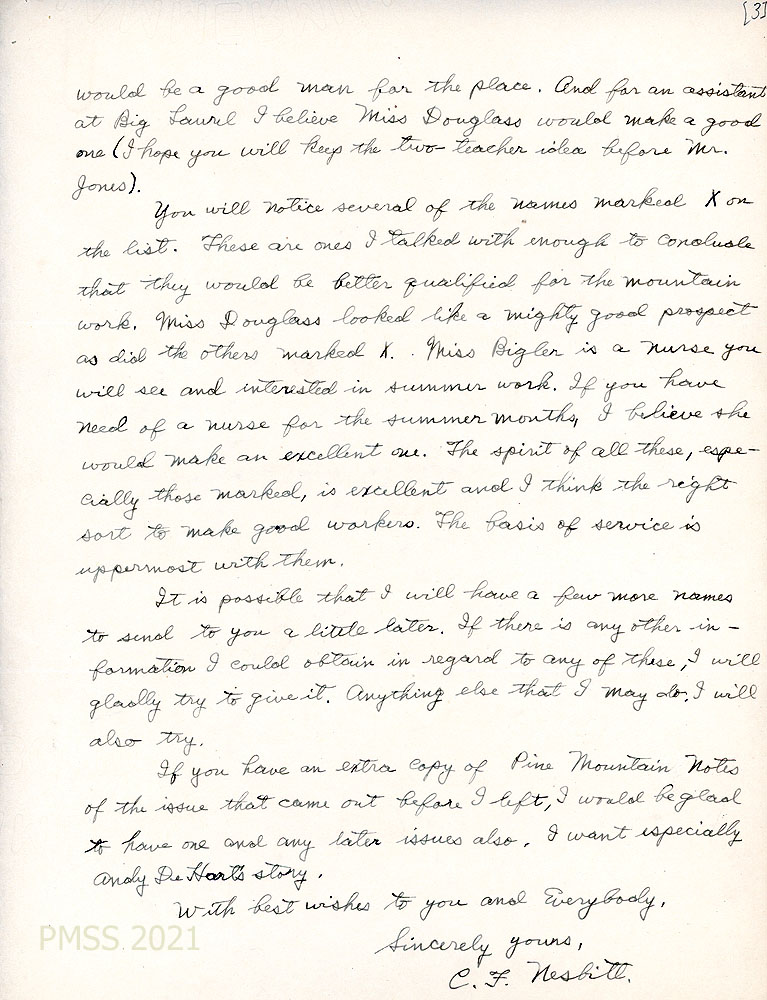 [3]
would be a good man for the place. And for an assistant
at Big Laurel I believe Miss Douglass would make a good
one (I hope you will keep the two-teacher idea before Mr.
Jones).
You will notice several of the names marked X on
the list. These are ones I talked with enough to conclude
that they would be better qualified for the mountain
work. Miss Douglass looked like a mighty good prospect
as did the others marked X. Miss Bigler is a nurse you
will see and interested in summer work. If you have
need of a nurse for the summer months, I believe she
would make an excellent one. The spirit of all these, espe-
cially those marked, is excellent and I think the right
sort to make good workers. The basis of service is
uppermost with them.
It is possible that I will have a few more names
to send to you a little later. If there is any other in-
formation I could obtain in regard to any of these, I will
gladly try to give it. Anything else that I may do, I will
also try.
If you have an extra copy of Pine Mountain Notes
of the issue that came out before I left, I would be glad
to have one and any later issues also. I want especially
Andy De Hart's story.
With best wishes to you and Everybody,
Sincerely yours,
C. F. Nesbitt.
PMSS 2021